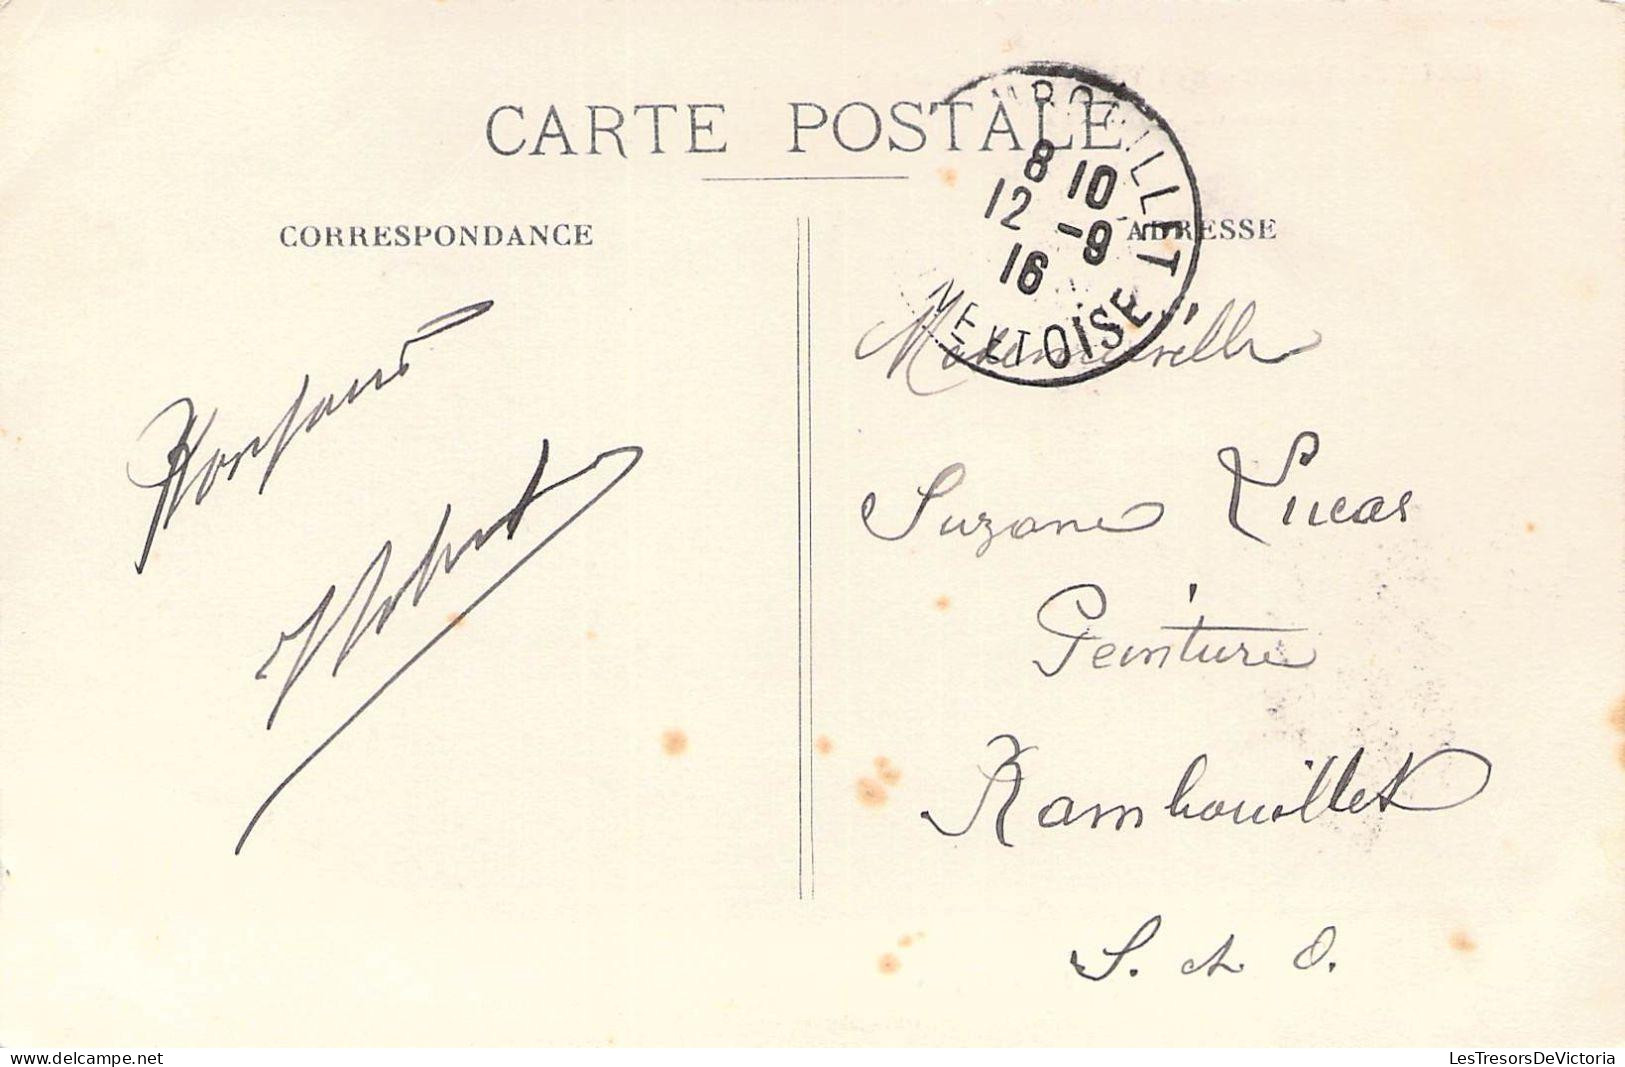 CARTE POSTALE
CORRESPONDANCE
ADRESSE
8 10
12 -9
16
SEINE ET OISE
Mademoiselle
Suzane Lucas
Peinture
Rambouillet
S. et O.
delcampe.net
LesTresorsDeVictoria